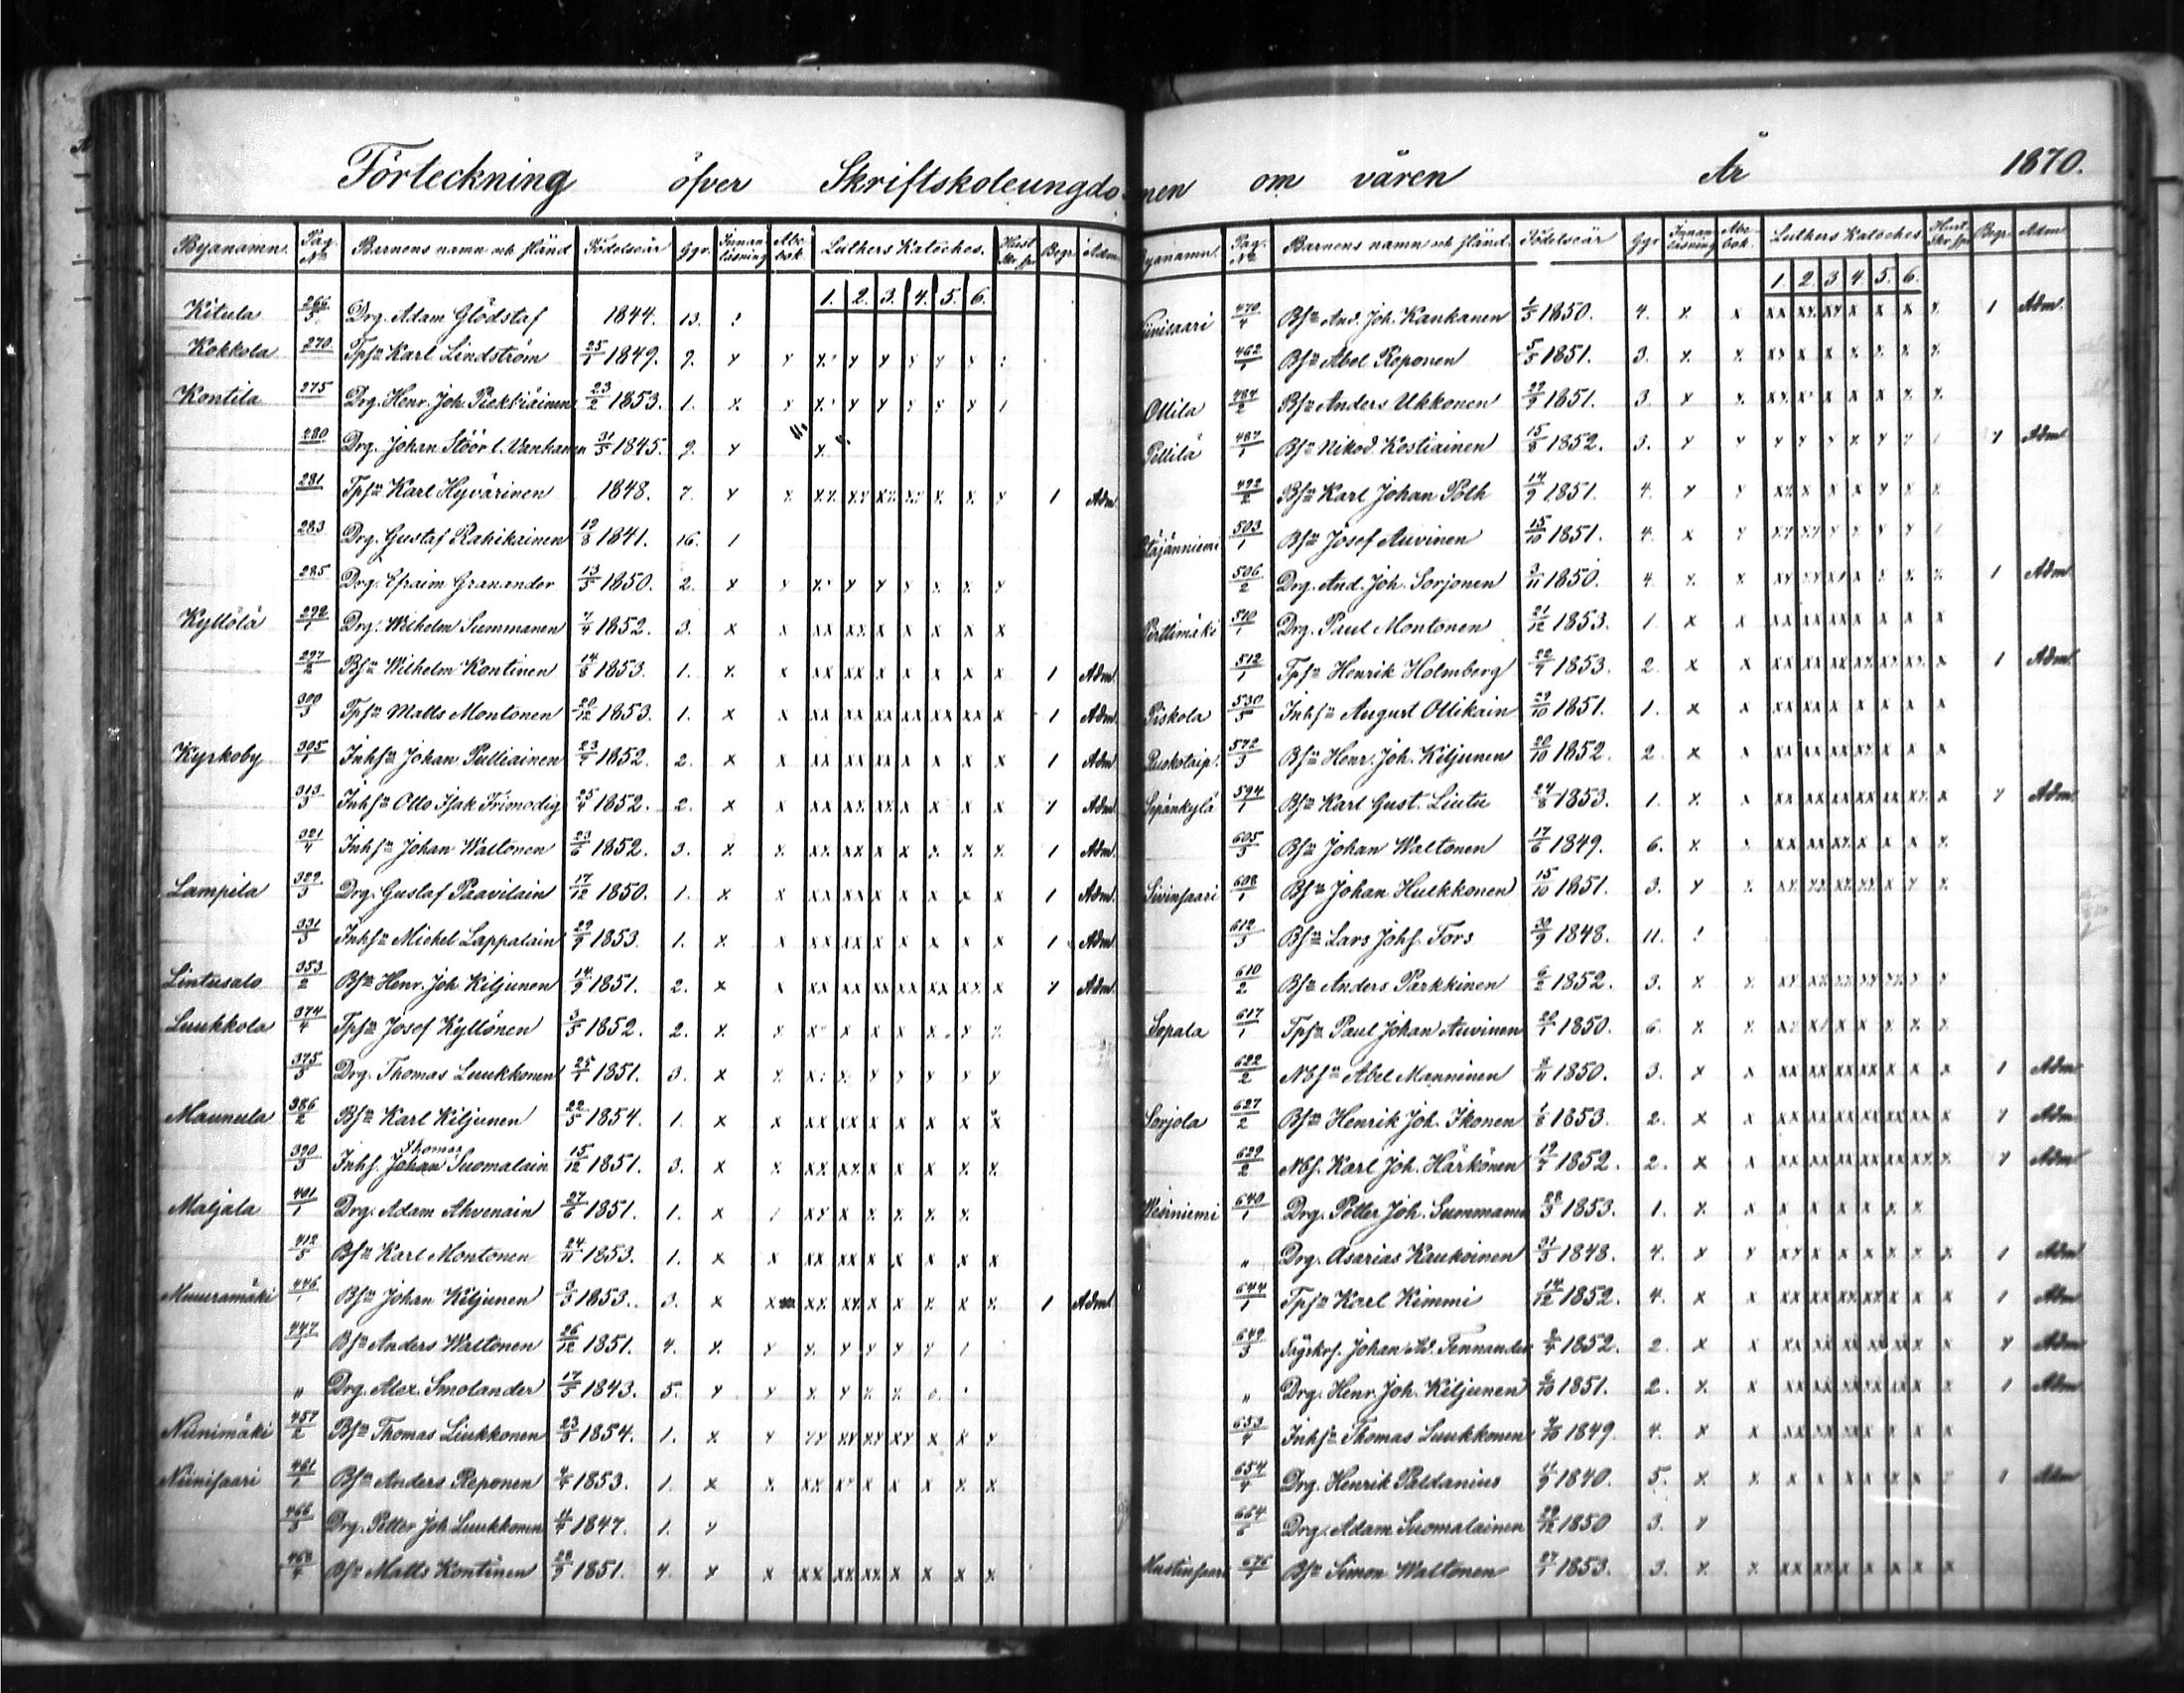 Förteckning öfver Skriftskoleungdomen om våren År 1870.
Byanamn. Pag. No Barnens namn och stånd Födelseår Ggr. Innanläsning Abcbok. Luthers Kateches. Hust. Begr. Adm.
1. 2. 3. 4. 5. 6.
Kitula 266/5 Drg. Adam Glödstaf 1844. 13. !
Kokkola 270 Tpsn Karl Lindström 25/1 1849. 9. x x x x x x x x
Kontila 275 Drg. Henr. Joh. Piekkiäinen 23/2 1853. 1. x x x x x x x x
280 Drg. Johan Stöör l. Vankanen 31/5 1845. 9. x x
281 Tpsn Karl Hyvärinen 1848. 7. x x xx xx xx xx x x x 1 Adm.
283 Drg. Gustaf Rahikainen 19/8 1841. 16. 1
285 Drg. Efraim Granander 13/5 1850. 2. x x x x x x x x x
Kyllölä 292/1 Drg. Wilhelm Summanen 7/4 1852. 3. x x xx xx x x x x x
297/2 Bsn Wilhelm Kontinen 14/8 1853. 1. x x xx xx x x x x x 1 Adm.
300/3 Tpsn Matts Montonen 20/12 1853. 1. x x xx xx xx xx xx xx x 1 Adm.
Kyrkoby 305/1 Inhsn Johan Pulliainen 23/9 1852. 2. x x xx xx xx x x x x 1 Adm.
313/3 Inhsn Otto Isak Frimodig 25/4 1852. 2. x x xx xx xx x x x x 1 Adm.
321/4 Inhsn Johan Waltonen 23/6 1852. 3. x x xx xx x x x x x 1 Adm.
Lampila 329/3 Drg. Gustaf Paavilain 17/12 1850. 1. x x xx xx x x x x x 1 Adm.
331/3 Inhsn Michel Lappalain 29/9 1853. 1. x x xx xx x x x x x 1 Adm.
Lintusalo 353/2 Bsn Henr. Joh. Kiljunen 14/9 1851. 2. x x xx xx xx xx xx xx x 1 Adm.
Luukkola 374/4 Tpsn Josef Kyllönen 3/5 1852. 2. x x x x x x x x x
375/5 Drg. Thomas Luukkonen 25/1 1851. 3. x x x x x x x x x
Maunula 386/2 Bsn Karl Kiljunen 22/5 1854. 1. x x xx xx x x x x x
Thomas
390/3 Inhs. Johan Suomalain 15/12 1851. 3. x x xx xx x x x x x
Maljala 401/1 Drg. Adam Ahvenain 27/6 1851. 1. x / xx x x x x x
412/5 Bsn Karl Montonen 24/11 1853. 1. x x xx xx x x x x x
Muuramäki 446/1 Bsn Johan Kiljunen 3/3 1853. 3. x x xx xx x x x x x 1 Adm.
447/1 Bsn Anders Waltonen 26/12 1851. 4. x x x x x x x /
" Drg. Alex. Smolander 17/5 1843. 5. x x x x x x
Niinimäki 457/2 Bsn Thomas Liukkonen 23/3 1854. 1. x x xx xx xx xx x x x
Niinisaari 461/1 Bsn Anders Reponen 4/4 1853. 1. x x xx x x x x x x
466/3 Drg. Petter Joh. Luukkonen 1847. 1. x
468/4 Bsn Matts Kontinen 28/9 1851. 4. x x xx xx xx x x x x
Byanamn. Pag. No Barnens namn och stånd. Födelseår Ggr Innanläsning Abcbok. Luthers Kateches Hust. Begr. Adm.
1. 2. 3. 4. 5. 6.
Niinisaari 470/4 Bsn And. Joh. Kankanen 1/5 1850. 4. x x xx xx xx x x x x 1 Adm.
462/1 Bsn Abel Reponen 5/5 1851. 3. x x xx x x x x x x
Ollila 484/2 Bsn Anders Ukkonen 29/9 1851. 3. x x xx x x x x x x
Pellilä 487/1 Bsn Nikod. Kostiainen 15/8 1852. 3. x x x x x x x x / 1 Adm
492/2 Bsn Karl Johan Pöth 14/9 1851. 4. x x xx x x x x x x
503/1 Bsn Josef Auvinen 15/10 1851. 4. x x xx xx x x x x /
506/2 Drg. And. Joh. Sorjonen 3/11 1850. 4. x x xx xx xx x x x x 1 Adm
Pirttimäki 510/1 Drg. Paul Montonen 21/12 1853. 1. x x xx xx xx x x x x
512/1 Tpsn Henrik Holmberg 22/7 1853. 2. x x xx xx xx xx xx xx x 1 Adm.
Piskola 530/5 Inhsn August Ollikain 29/10 1851. 1. x x xx xx x x x x x
Puskolaip. 572/3 Bsn Henr. Joh. Kiljunen 20/10 1852. 2 x x xx xx xx xx x x x
Sepänkylä 594/1 Bsn Karl Gust. Liutu 24/8 1853. 1. x x xx xx xx xx xx xx x 1 Adm.
605/3 Bsn Johan Waltonen 17/6 1849. 6. x x xx xx xx x x x x
608/1 Bsn Johan Hulkkonen 15/10 1851. 3. x x xx xx xx xx x x x
612/3 Bsn Lars Johs. Fors 30/9 1848. 11. !
610/2 Bsn Anders Parkkinen 6/2 1852. 3. x x xx xx xx xx xx x x
Sopala 617/1 Tpsn Paul Johan Auvinen 20/1 1850. 6. x x xx xx x x x x x
622/2 Nbsn Abel Manninen 8/11 1850. 3. x x xx xx xx xx xx x x 1 Adm
Sorjola 627/2 Bsn Henrik Joh. Ikonen 1/8 1853. 2. x x xx xx xx xx xx xx x 1 Adm
629/2 Nbs. Karl Joh. Härkönen 19/7 1852. 2. x x xx xx xx xx xx xx x 1 Adm
640/1 Drg. Petter Joh. Summanen 28/3 1853. 1. x x x x x x x x
" Drg. Asarias Kaukoinen 31/3 1848. 4. x x xx x x x x x x 1 Adm
644/1 Tpsn Karl Kimmi 14/12 1852. 4. x x xx xx xx xx xx x x 1 Adm
649/3 Johan Fennander 1852. 2. x x xx xx xx xx xx x x 1 Adm
" Drg. Henr. Joh. Kiljunen 6/10 1851. 2. x x xx xx xx xx xx x x 1 Adm
653/4 Inhsn Thomas Luukkonen 1849. 4. x x xx xx xx x x x x
654/4 Drg. Henrik Paldanius 11/9 1840. 5. x x x x x x x x 1 Adm
664/6 Drg. Adam Suomalainen 29/12 1850 3. x
676/1 Bsn Simon Waltonen 27/1 1853. 3. x x xx xx x x x x x